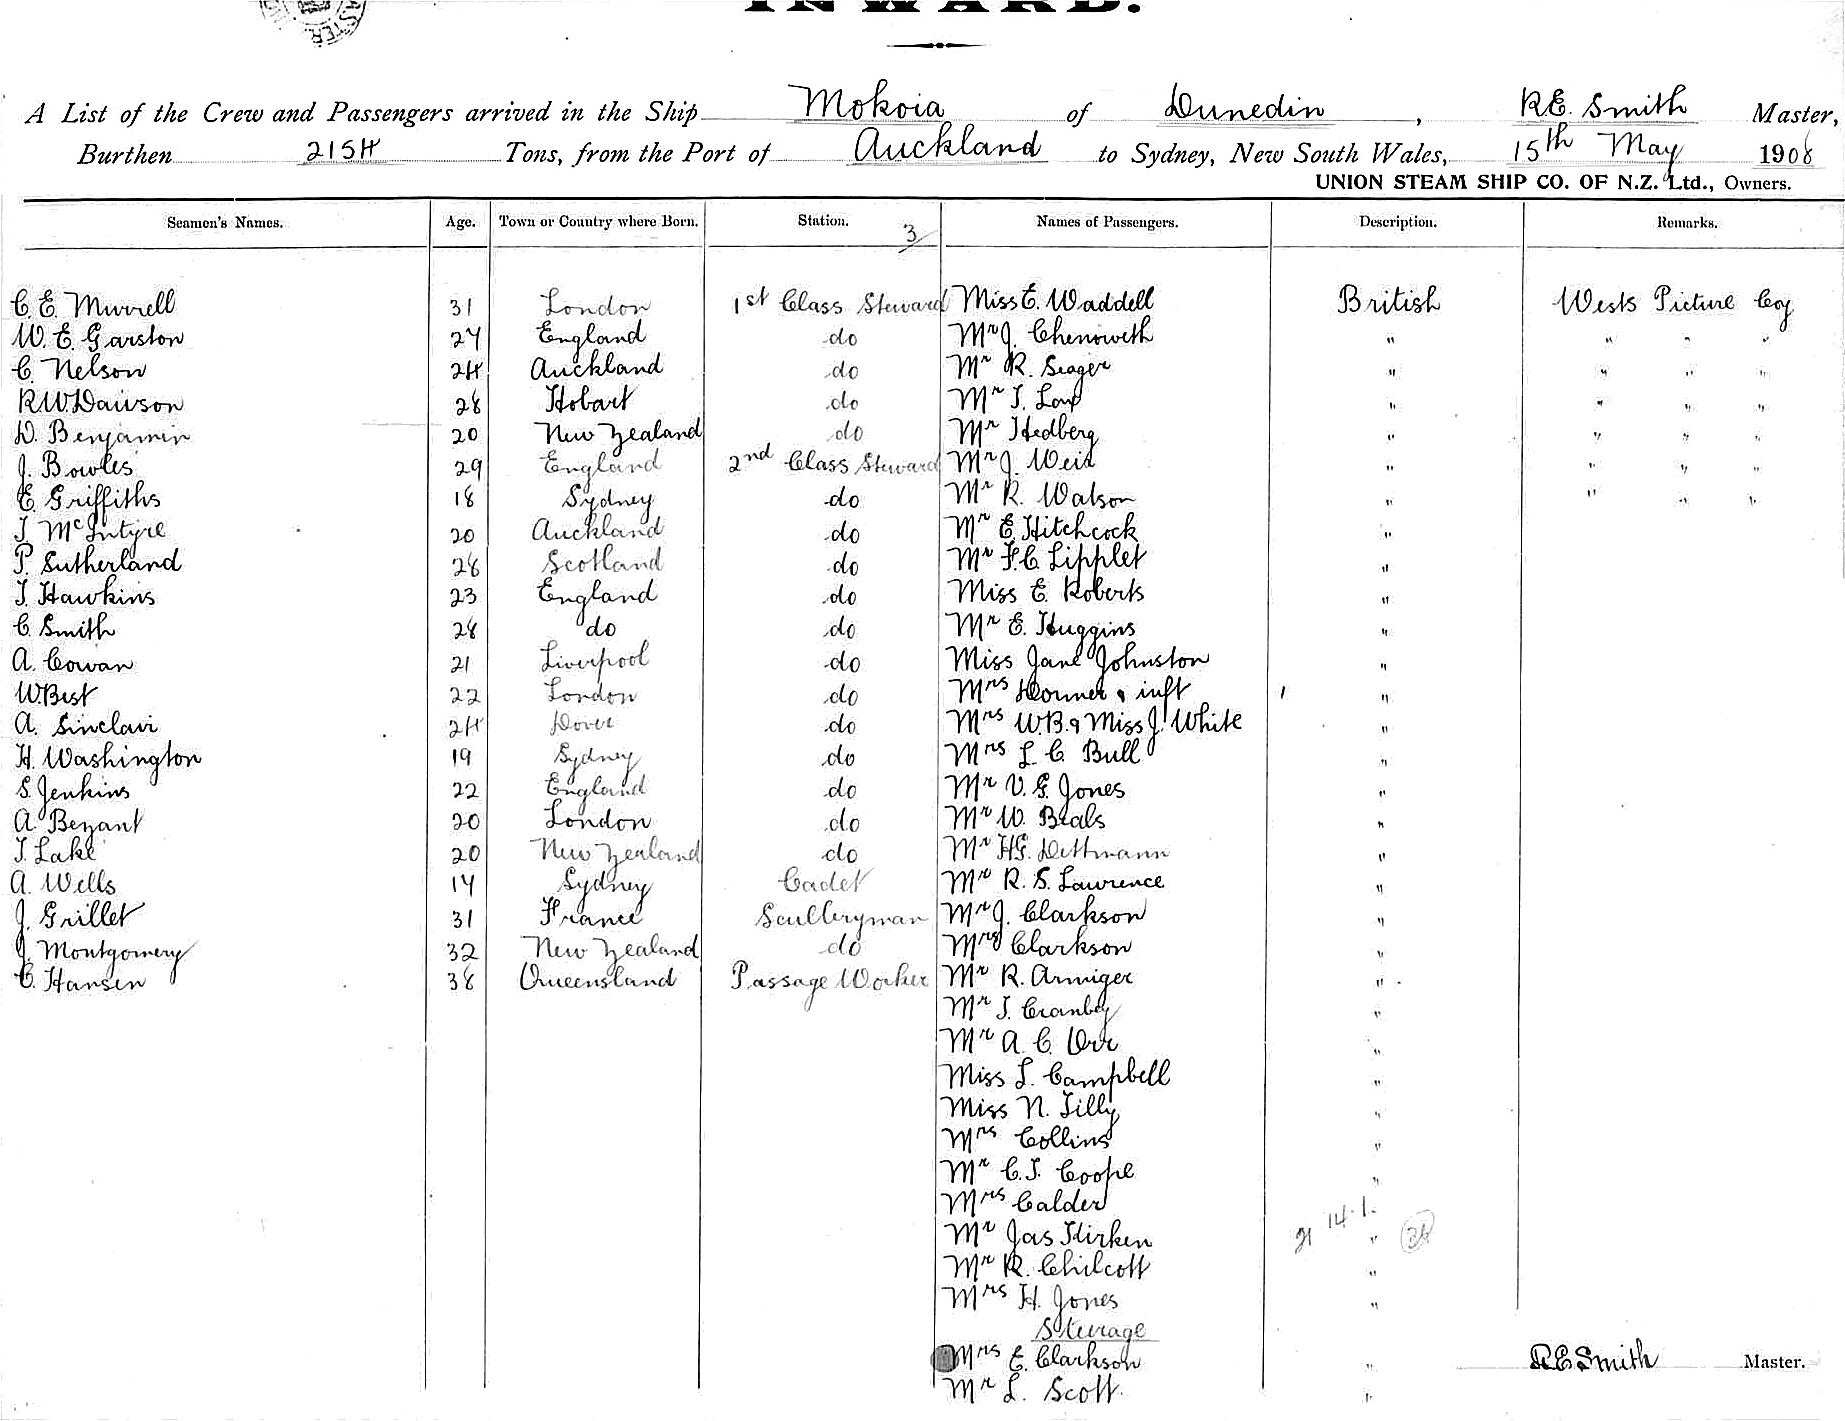 INWARD.
A List of the Crew and Passengers arrived in the Ship Mokoia of Dunedin, R.E. Smith Master,
Burthen 2154 Tons, from the Port of Auckland to Sydney, New South Wales, 15th May 1908
UNION STEAM SHIP CO. OF N.Z. Ltd., Owners.
Seamen's Names. Age. Town or Country where Born. Station. 3 Names of Passengers. Description. Remarks.
C. E. Murrell 31 London 1st Class Steward Miss E. Waddell British Wests Picture Coy
W. E. Garston 27 England do Mr J. Chenoweth " " " "
C. Nelson 24 Auckland do Mr R. Seager " " " "
R.W. Dawson 28 Hobart do Mr T. " " " "
D. Benjamin 20 New Zealand do Mr Hedberg " " " "
J. Bowles 29 England 2nd Class Steward Mr J. Weir " " " "
E. Griffiths 18 Sydney do Mr R. Watson " " " "
T McIntyre 20 Auckland do Mr E. Hitchcock "
P. Sutherland 28 Scotland do Mr F.C. Lipplet "
T. Hawkins 23 England do Miss E. Roberts "
C. Smith 28 do do Mr E. Huggins "
A. Cowan 21 Liverpool do Miss Jane Johnston "
W. Best 22 London do Mrs & inft "
A. Sinclair 24 Dover do Mrs W.B. & Miss J. White "
H. Washington 19 Sydney do Mrs L. C. Bull "
S. Jenkins 22 England do Mr V. G. Jones "
A. Bezant 20 London do Mr W. Beals "
T. Lake 20 New Zealand do Mr H.G. Dettmann "
A. Wells 17 Sydney Cadet Mr R. S. Lawrence "
J. Grillet 31 France Sculleryman Mr J. Clarkson "
J. Montgomery 32 New Zealand do Mrs Clarkson "
C. Hansen 38 Queensland Passage Worker Mr R. Armiger "
Mr T. Cranby "
Mr A. C. Orr "
Miss L. Campbell "
Miss N. Tilly "
Mrs Collins "
Mr C. T. Coope "
Mrs Calder
Mr Jas Kirken 21 14. 1. " 36
Mr R. Chilcott "
Mrs H. Jones "
Steerage
Mrs E. Clarkson " R E Smith Master.
Mr L. Scott "